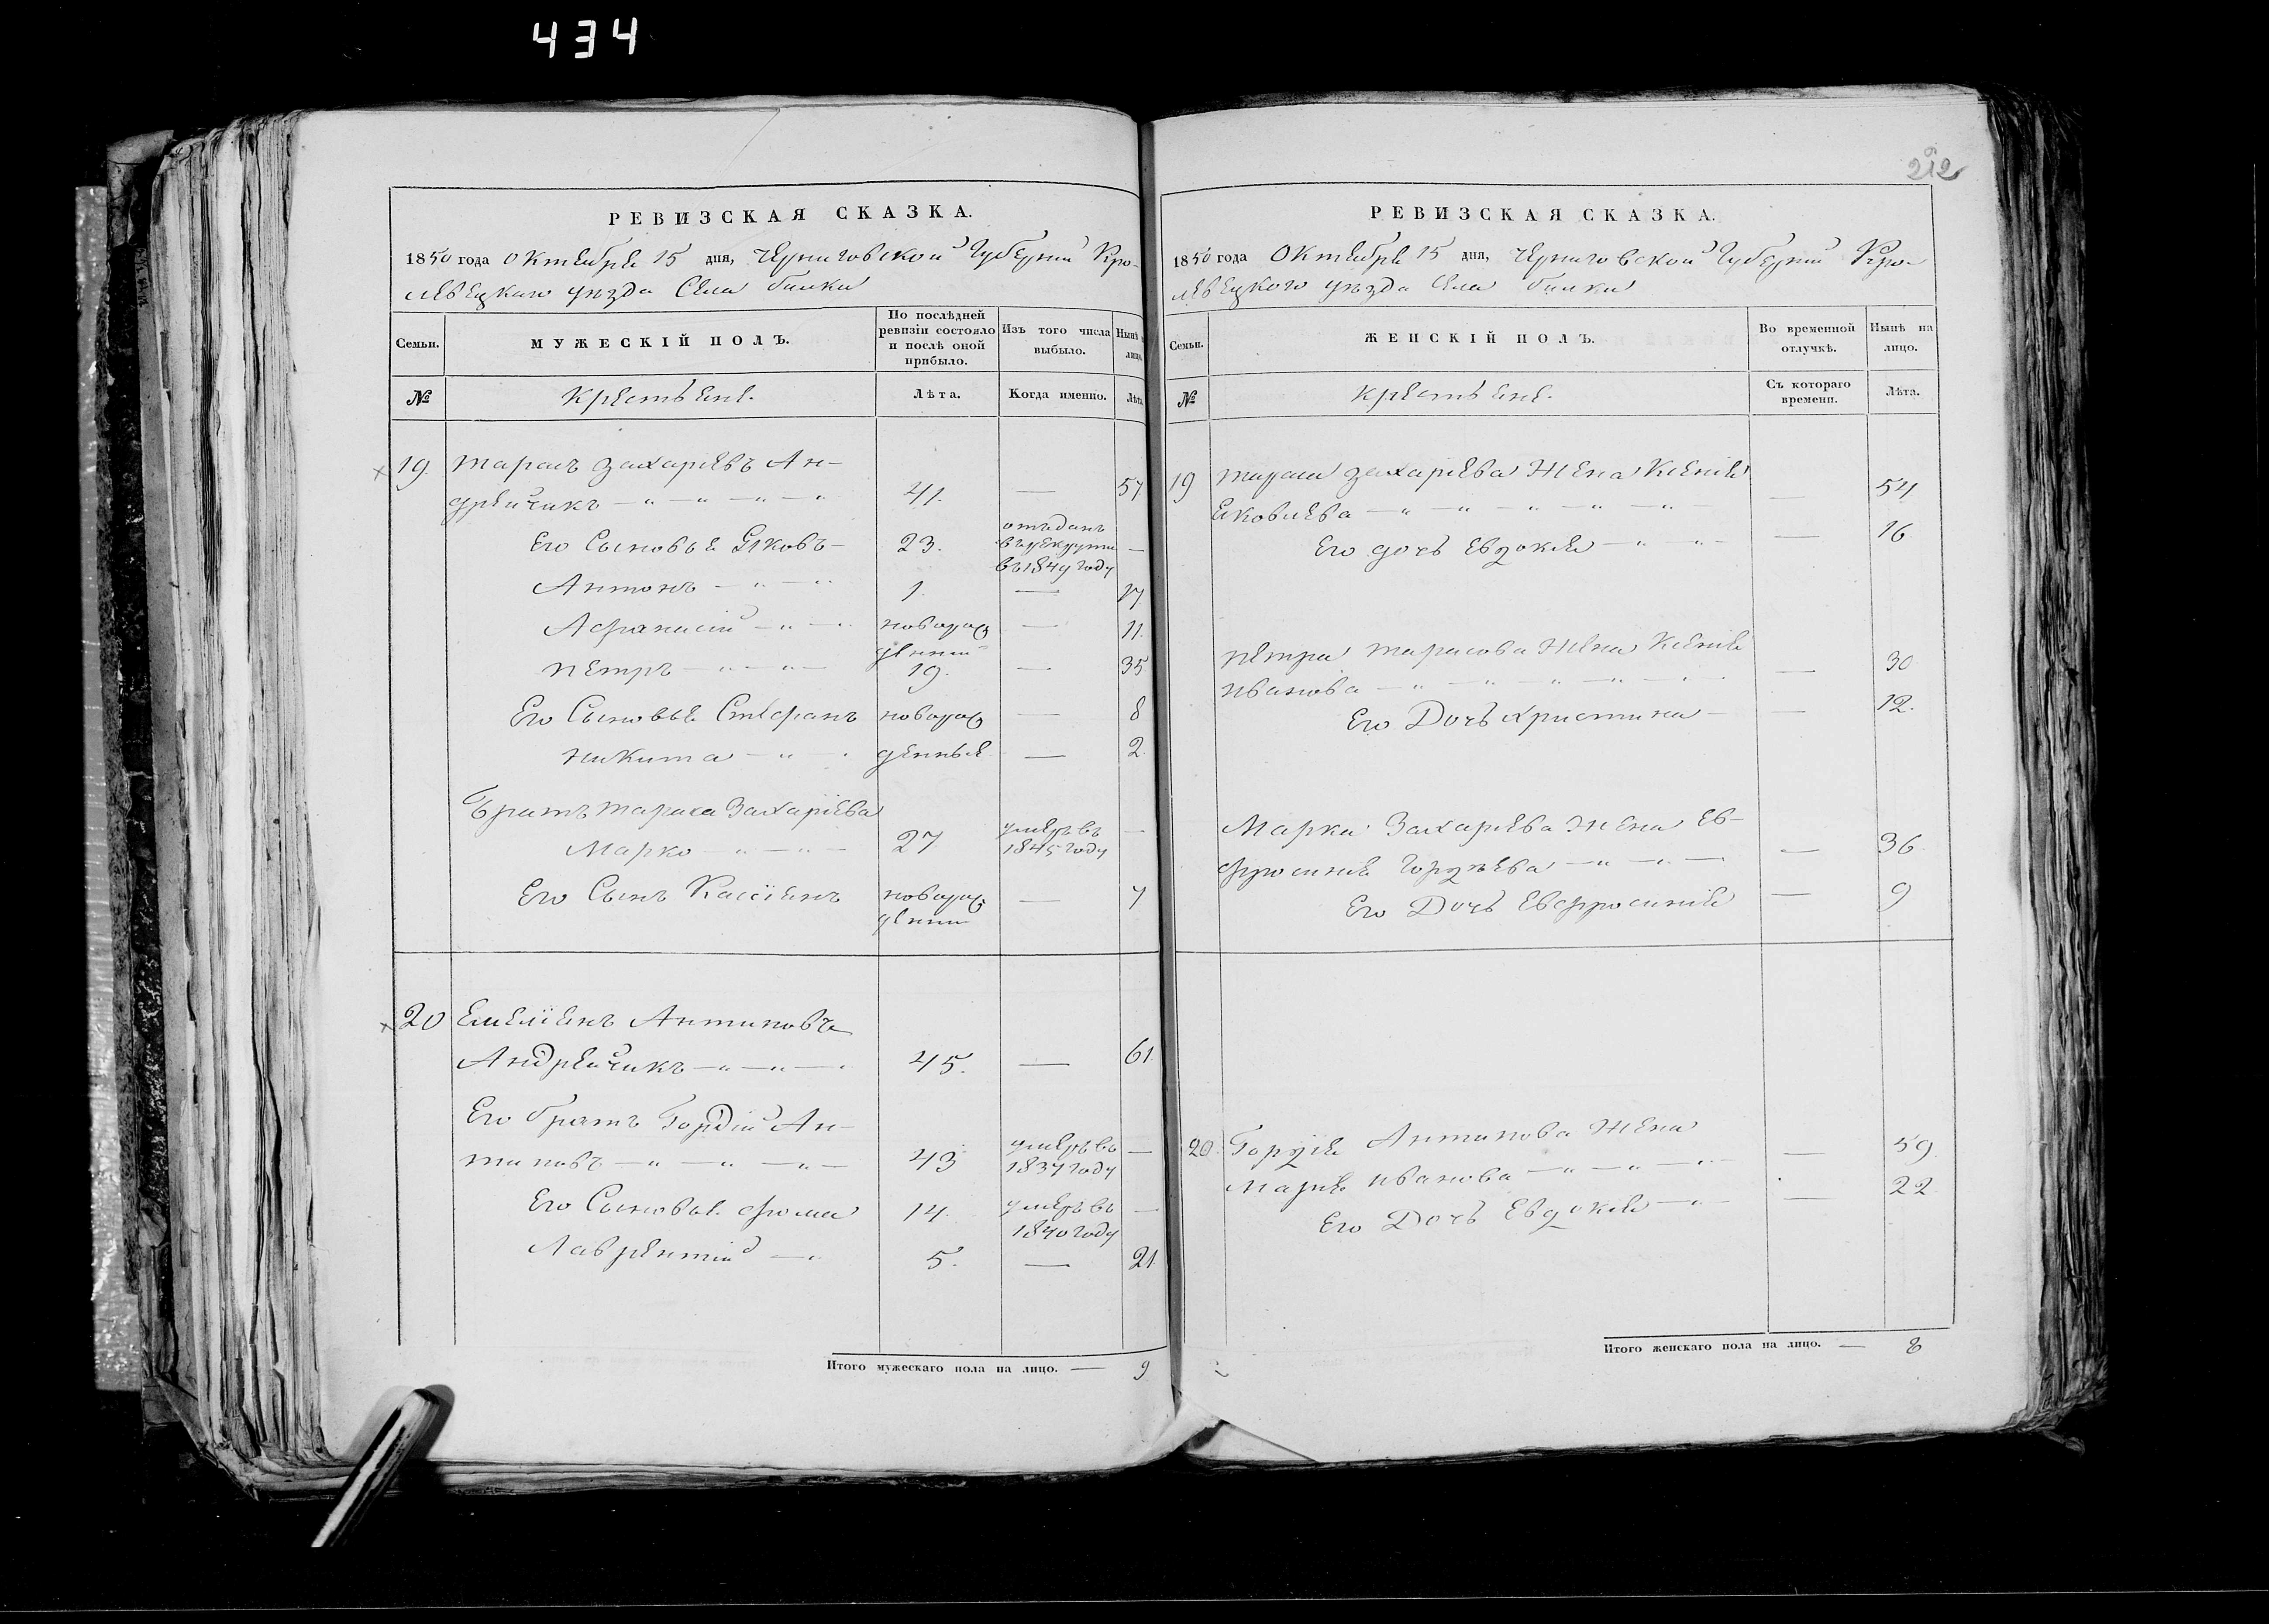 434
212
РЕВИЗСКАЯ СКАЗКА.
1850 года Октября 15 дня, Черниговской Губерніи Кро-
левецкаго уезда Села Билки
Семьи.
МУЖЕСКІЙ ПОЛЪ.
По послѣдней ревизіи состояло и послѣ оной прибыло.
Изъ того числа выбыло.
Нынѣ на лицо.
№
Крестьяне.
Лѣта.
Когда именно.
Лѣта.
19. Тарасъ Захаріевъ Ан-
дрейчикъ 41. — 57
Его Сыновья Яковъ 23. отъданъ въ рекруты въ 1849 году —
Антонъ 1. — 17
Афанасій новорож денный — 11.
Петръ 19. — 35
Его Сыновья Стефанъ новорож — 8
Никита денные — 2.
Братъ Тараса Захаріева
Марко 27 умеръ въ 1845 году —
Его Сынъ Кассіянъ новорож денный — 7
20 Емеліянъ Антиповъ
Андрейчикъ 45. — 61.
Его братъ Гордій Ан-
типовъ 43 умеръ въ 1837 году —
Его Сыновья Фома 14. умеръ въ 1840 году —
Лаврентій 5. — 21
Итого мужескаго пола на лицо. — 9
РЕВИЗСКАЯ СКАЗКА.
1850 года Октября 15 дня, Черниговской Губерніи Кро-
левецкого уезда Села Билки
Семьи.
ЖЕНСКІЙ ПОЛЪ.
Во временной отлучкѣ.
Нынѣ на лицо.
№
Крестьяне.
Съ котораго времени.
Лѣта.
19 Тараса Захаріева Жена Ксенія
Яковлева — 54
Его дочь Евдокія — 16
Петра Тарасова Жена Ксенія
Иванова — 30
Его Дочь Христина — 12.
Марка Захаріева Жена Ев-
фросинія Гордѣева — 36
Его Дочь Евфросинія — 9
20. Гордія Антипова Жена
Марія Иванова — 59.
Его Дочь Евдокія — 22
Итого женскаго пола на лицо. — 8